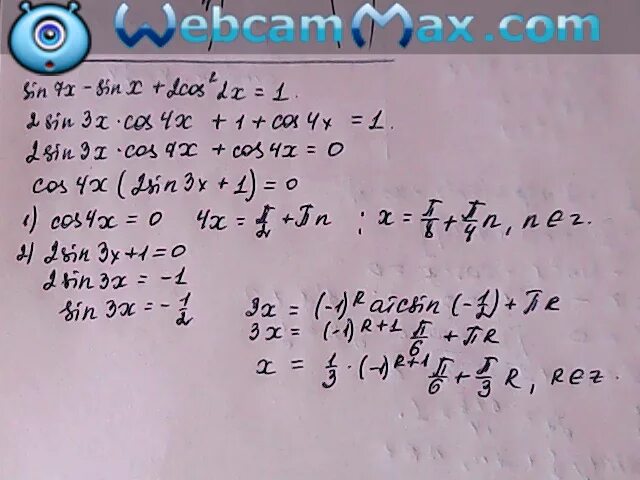 WebcamMax.com
sin 7x - sin x + 2cos² 2x = 1.
2 sin 3x · cos 4x + 1 + cos 4x = 1.
2 sin 3x · cos 4x + cos 4x = 0
cos 4x (2 sin 3x + 1) = 0
1) cos 4x = 0 4x = π/2 + πn ; x = π/8 + π/4 n, n ∈ z.
2) 2 sin 3x + 1 = 0
2 sin 3x = -1
sin 3x = -1/2 3x = (-1)^k arcsin (-1/2) + πk
3x = (-1)^k+1 π/6 + πk
x = 1/3 · (-1)^k+1 π/6 + π/3 k, k ∈ z.